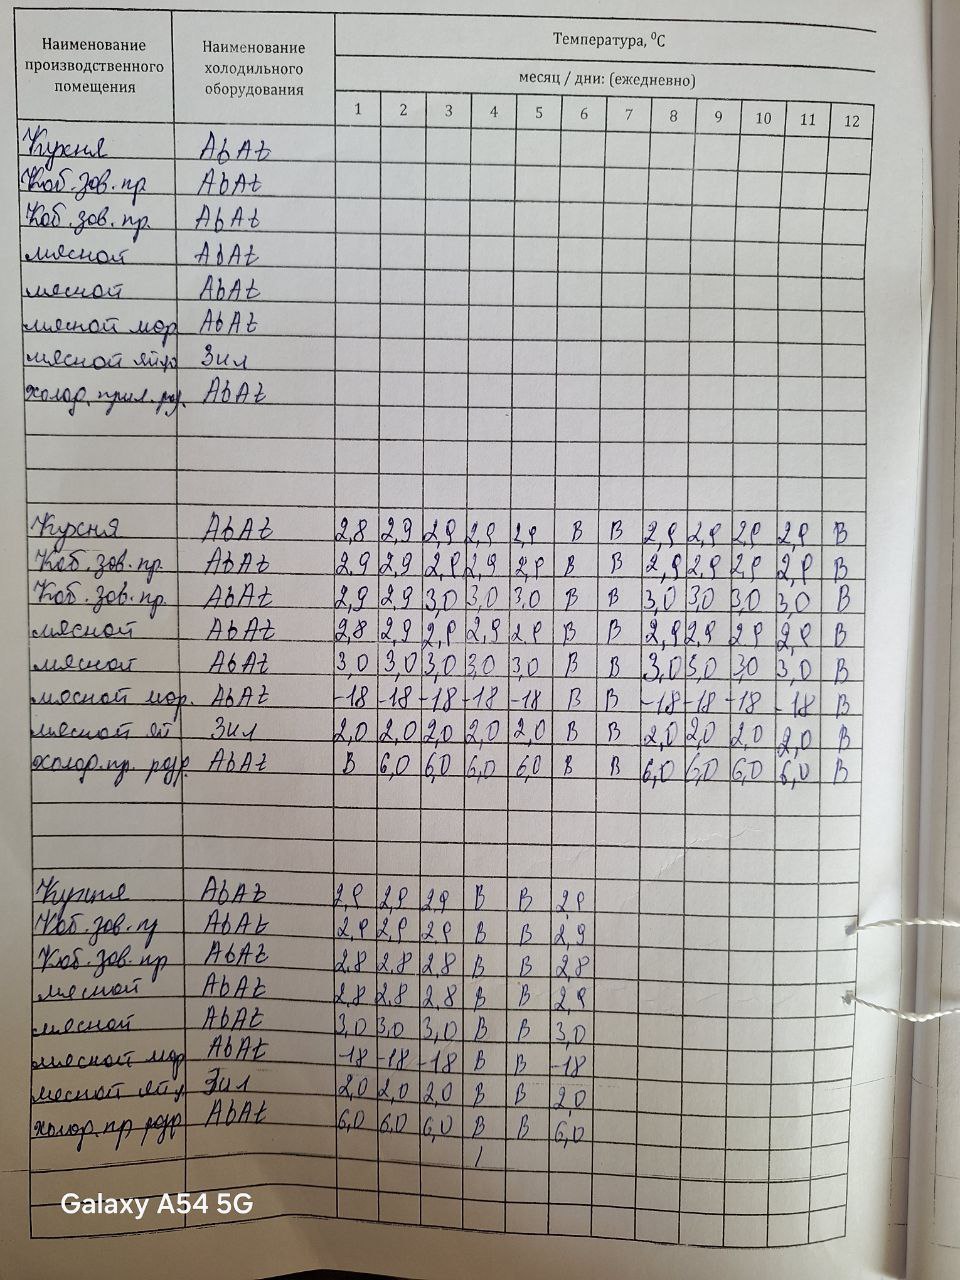 Наименование производственного помещения Наименование холодильного оборудования Температура, ⁰С
месяц / дни: (ежедневно)
1 2 3 4 5 6 7 8 9 10 11 12
Кухня AbAt
Каб. зав. пр AbAt
Каб. зав. пр. AbAt
мясной AbAt
мясной AbAt
мясной мор AbAt
мясной яйцо Зил
холод. прил. AbAt
Кухня AbAt 2,8 2,9 2,9 2,9 2,9 В В 2,9 2,9 2,9 2,9 В
Каб. зав. пр. AbAt 2,9 2,9 2,9 2,9 2,9 В В 2,9 2,9 2,9 2,9 В
Каб. зав. пр. AbAt 2,9 2,9 3,0 3,0 3,0 В В 3,0 3,0 3,0 3,0 В
мясной AbAt 2,8 2,9 2,9 2,9 2,9 В В 2,9 2,9 2,9 2,9 В
мясной AbAt 3,0 3,0 3,0 3,0 3,0 В В 3,0 3,0 3,0 3,0 В
мясной мор. AbAt -18 -18 -18 -18 -18 В В -18 -18 -18 -18 В
мясной яй Зил 2,0 2,0 2,0 2,0 2,0 В В 2,0 2,0 2,0 2,0 В
холод. пр. AbAt В 6,0 6,0 6,0 6,0 В В 6,0 6,0 6,0 6,0 В
Кухня AbAt 2,9 2,9 2,9 В В 2,9
Каб. зав. п AbAt 2,9 2,9 2,9 В В 2,9
Каб. зав. пр AbAt 2,8 2,8 2,8 В В 2,8
мясной AbAt 2,8 2,8 2,8 В В 2,9
мясной AbAt 3,0 3,0 3,0 В В 3,0
мясной мор AbAt -18 -18 -18 В В -18
мясной яйц Зил 2,0 2,0 2,0 В В 2,0
холод. пр AbAt 6,0 6,0 6,0 В В 6,0
Galaxy A54 5G